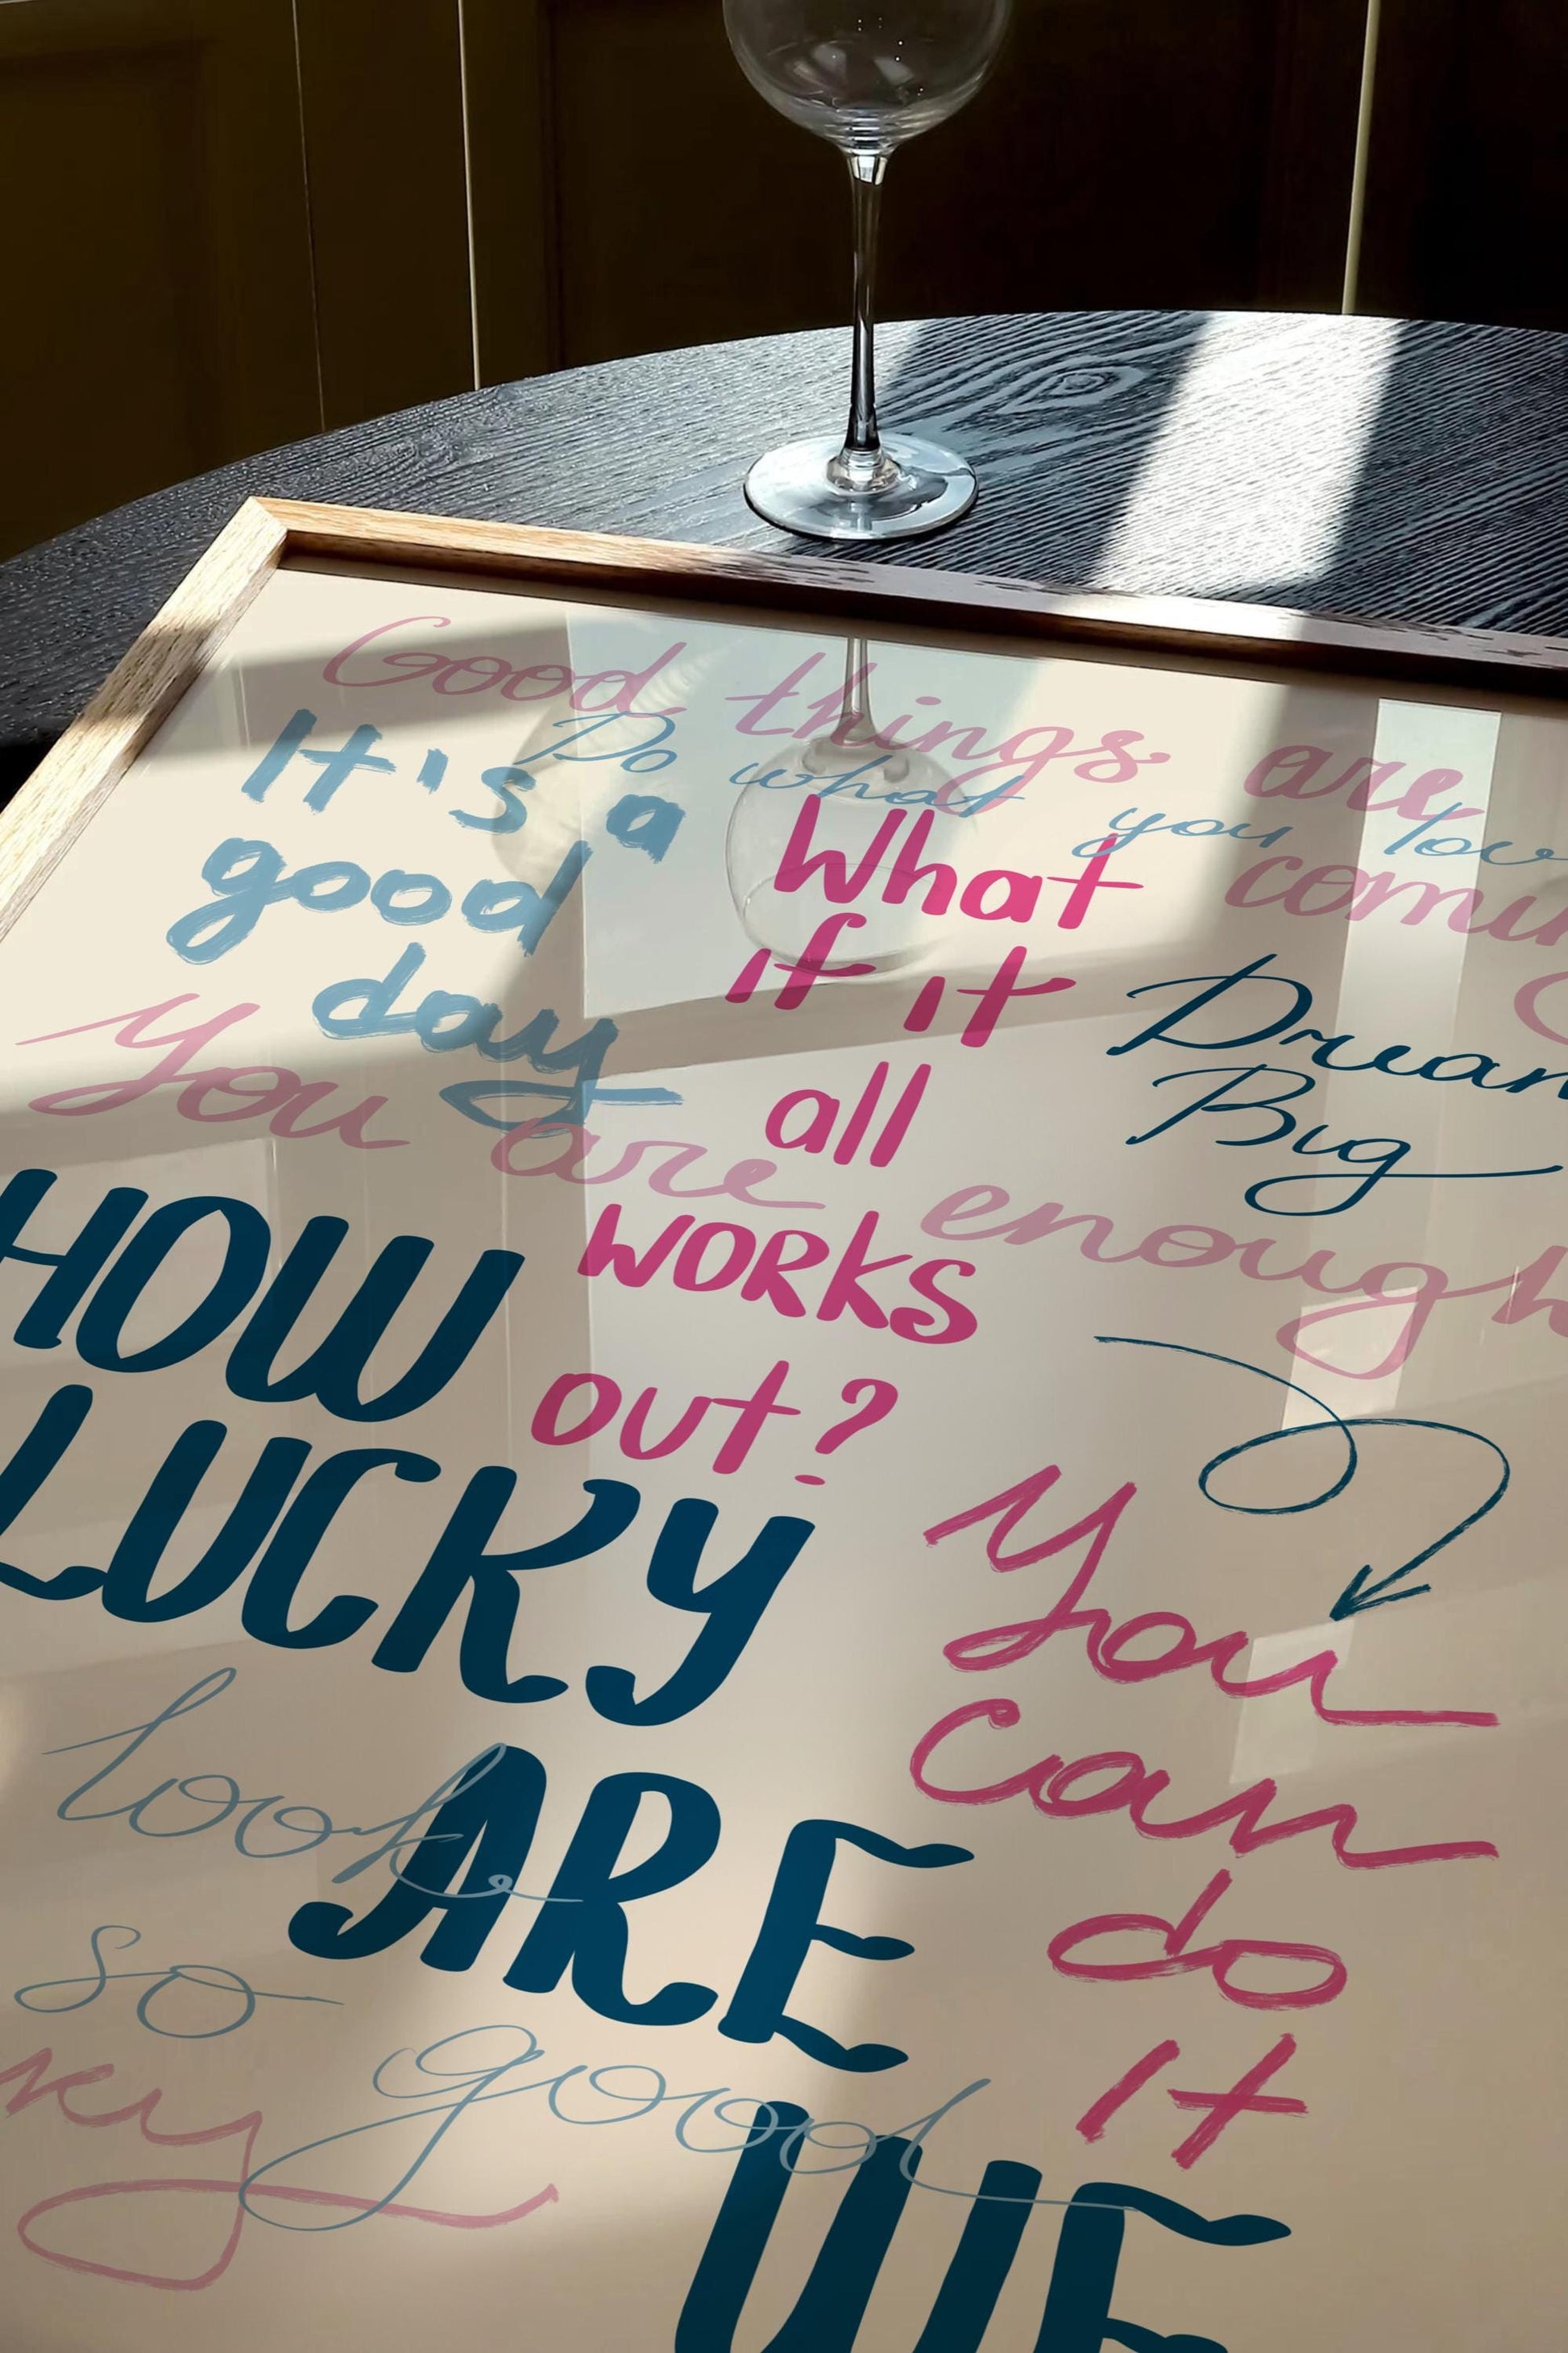 Good things are
comin
Do what you lov
It's a
good
day
What
if it
all
works
out?
Dream
Big
You are enough
HOW
LUCKY
ARE
WE
You
can
do
it
look
so
good
ky